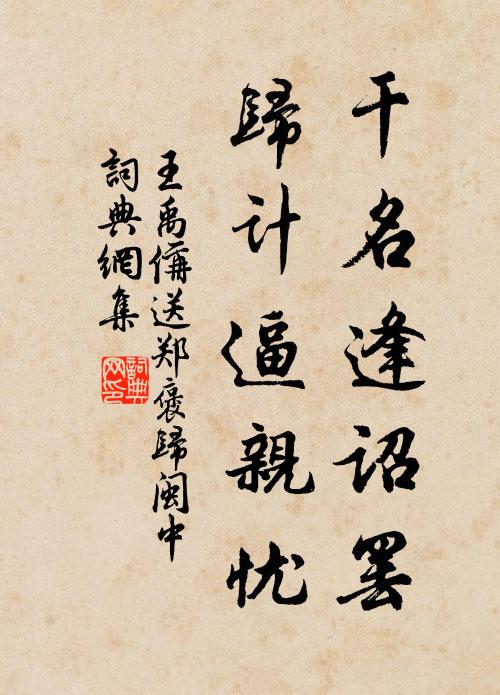 干名逢诏罢
歸计逼親忧
王禹偁送郑褒歸闽中
詞典網集
詞典网印